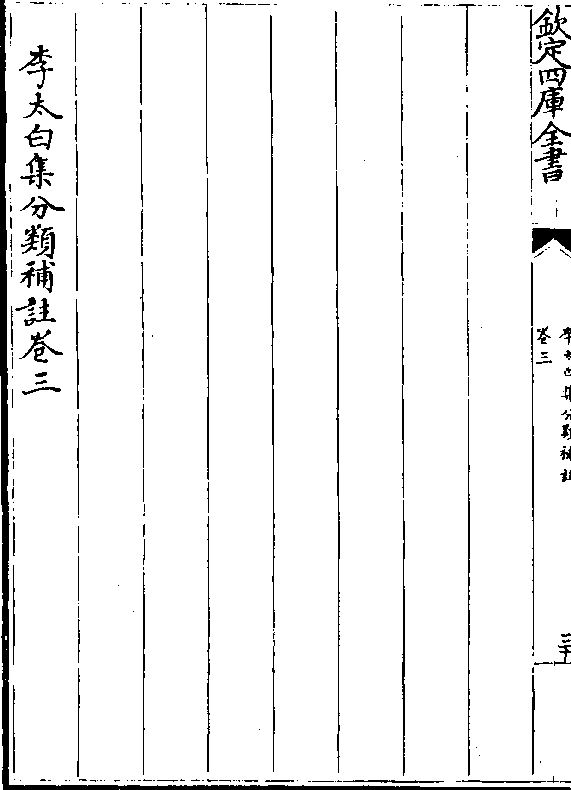 欽定四庫全書
李太白集分類補註
卷三
李太白集分類補註卷三